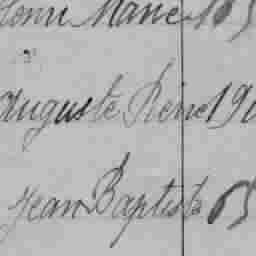 Henri Marie 165
Auguste Réné 190
Jean Baptiste 65